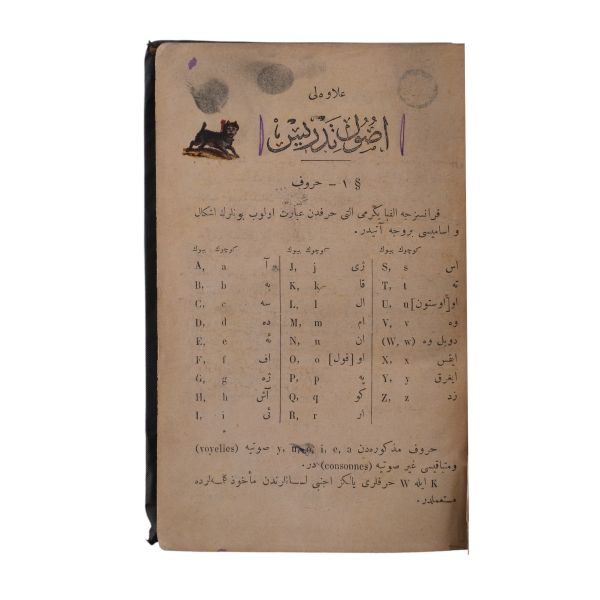 علاوه‌لی
اصُول تدريس
§ ١ - حروف
فرانسزجه الفبا يكرمی التی حرفدن عبارت اولوب بونلرك اشكال
و اساميسی بروجه آتيدر .
بيوك كوچوك بيوك كوچوك بيوك كوچوك
A, a آ J, j ژی S, s اس
B, b به K, k قا T, t ته
C, c سه L, l ال U, u او[اوستون]
D, d ده M, m ام V, v وه
E, e ئه N, n ان (W, w) دوبل وه
F, f اف O, o او[قول] X, x ايقس
G, g ژه P, p په Y, y ايغرق
H, h آش Q, q كو Z, z زد
I, i ئی R, r ار
حروف مذكوره‌دن y, u, o, i, e, a صوتيه (voyelles)
ومتباقيسی غير صوتيه (consonnes) در.
K ايله W حرفلری يالكز اجنبی لسانلرندن مأخوذ كلمه‌لرده
مستعملدر.